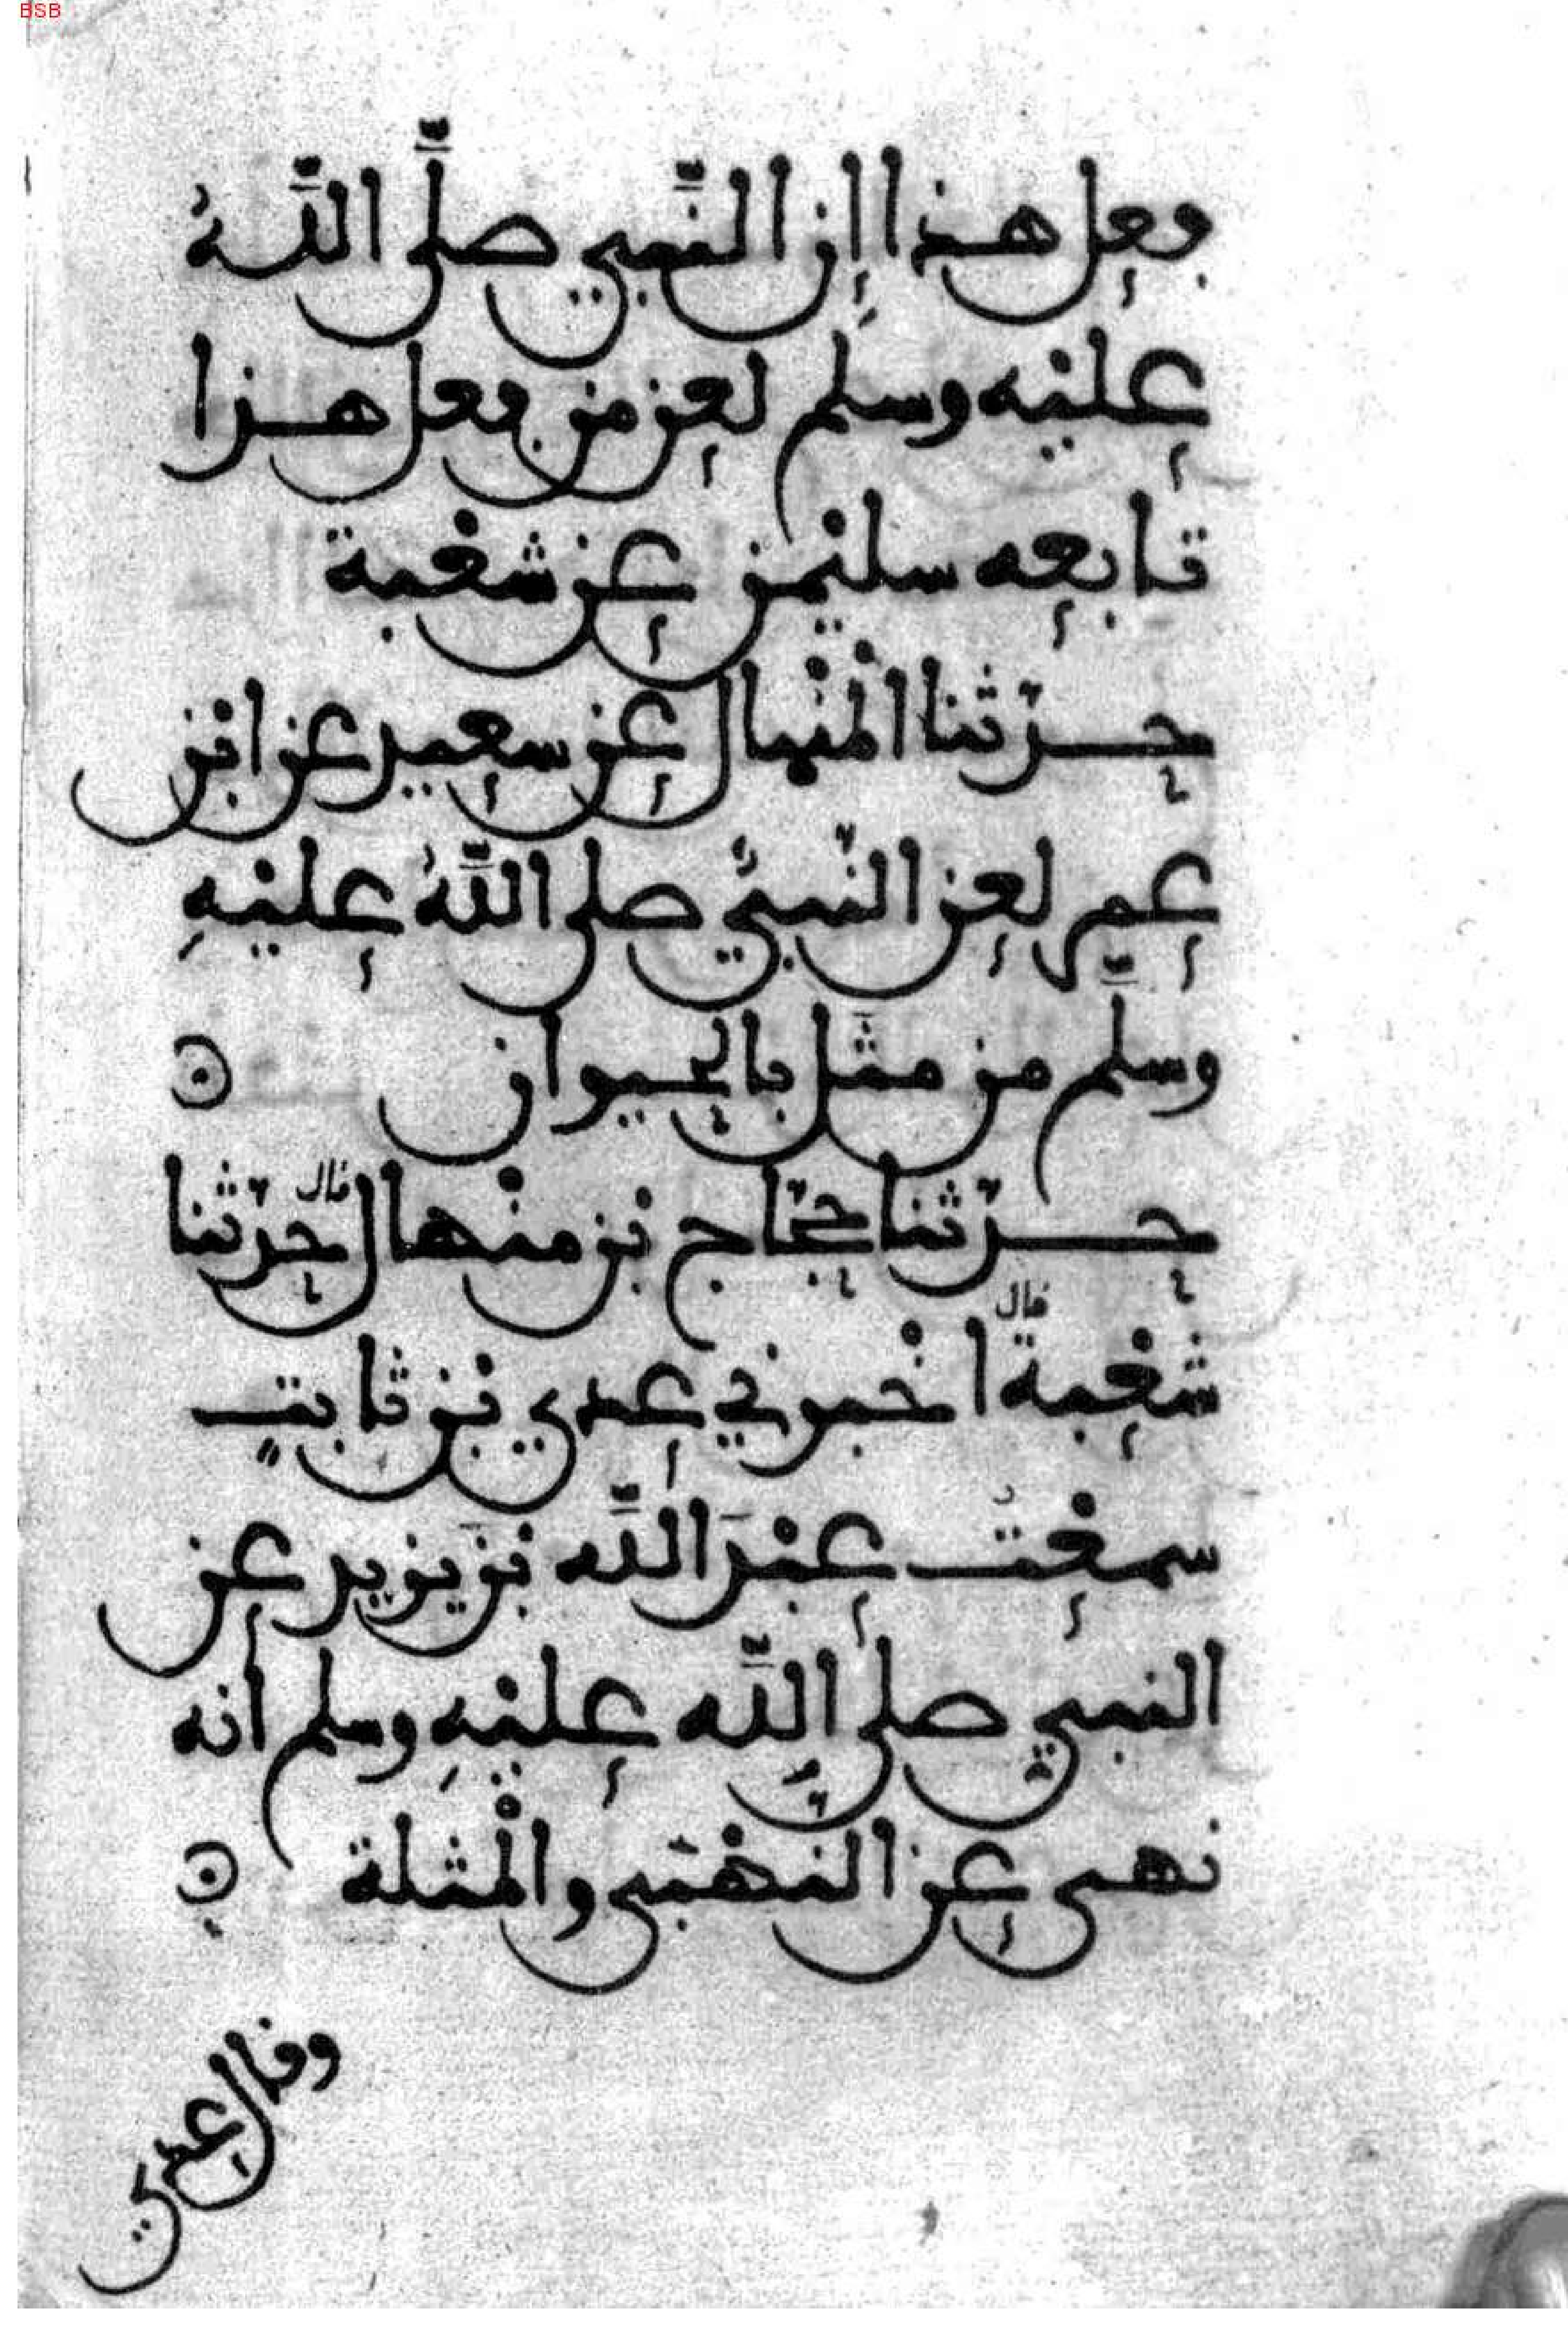 BSB
فعل هذا إن النبي صلى اللهُ
عليه وسلم لعن من فعل هذا
تابعه سليمن عن شعبة
حدثنا المنهال عن سعيد عن ابن
عمر لعن النبيُّ صلى اللهُ عليهِ
وسلم من مثّل بالحيوان
حدثنا حجاج بن منهال قال حدثنا
شعبة قال اخبرني عدي بن ثابتٍ
سمعتُ عبدَ الله بن يزيد عن
النبي صلى الله عليهِ وسلم أنه
نهى عن النهبى والمثلة
وقال عدي